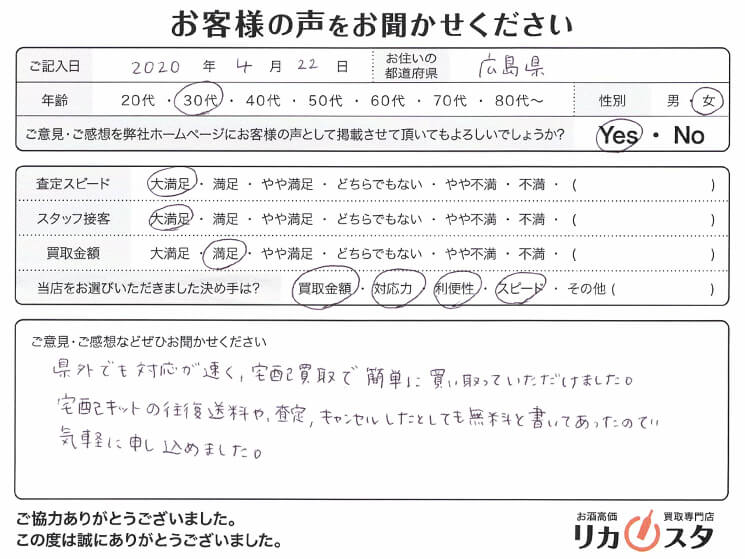 お客様の声をお聞かせください
ご記入日 2020 年 4 月 22 日 お住いの都道府県 広島県
年齢 20代 ・ 30代 ・ 40代 ・ 50代 ・ 60代 ・ 70代 ・ 80代〜 性別 男 ・ 女
ご意見・ご感想を弊社ホームページにお客様の声として掲載させて頂いてもよろしいでしょうか? Yes ・ No
査定スピード 大満足 ・ 満足 ・ やや満足 ・ どちらでもない ・ やや不満 ・ 不満 ・ ( )
スタッフ接客 大満足 ・ 満足 ・ やや満足 ・ どちらでもない ・ やや不満 ・ 不満 ・ ( )
買取金額 大満足 ・ 満足 ・ やや満足 ・ どちらでもない ・ やや不満 ・ 不満 ・ ( )
当店をお選びいただきました決め手は? 買取金額 ・ 対応力 ・ 利便性 ・ スピード ・ その他 ( )
ご意見・ご感想などぜひお聞かせください
県外でも対応が速く,宅配買取で簡単に買い取っていただけました。
宅配キットの往復送料や,査定,キャンセルしたとしても無料と書いてあったので
気軽に申し込めました。
ご協力ありがとうございました。
この度は誠にありがとうございました。
お酒高価 買取専門店
リカスタ